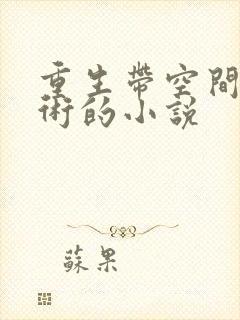 重生帶空間
術的小説
蘇果